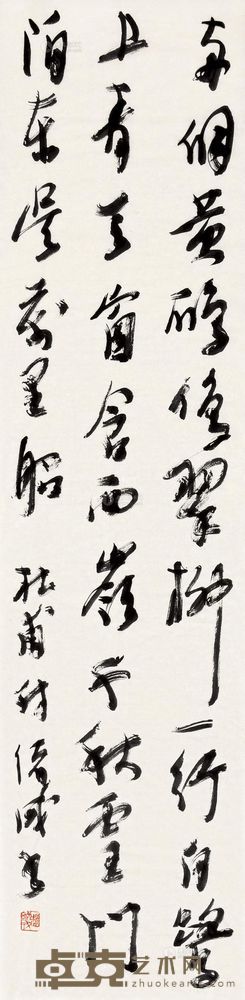 两個黄鸝鳴翠柳一行白鷺
上青天窗含西嶺千秋雪門
泊東吴萬里船 杜甫詩
卓克艺术网
zhuokearts.com